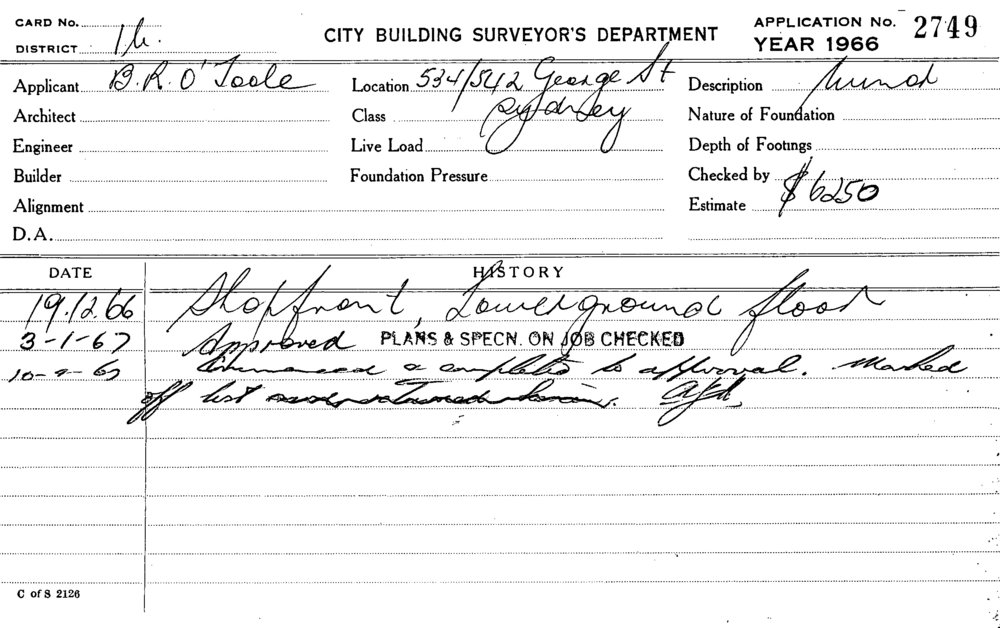 CARD No.
DISTRICT 1b.
CITY BUILDING SURVEYOR'S DEPARTMENT
APPLICATION No. 2749
YEAR 1966
Applicant B.R. O'Toole
Location 534/542 George St
Sydney
Description Minor
Architect
Class
Nature of Foundation
Engineer
Live Load
Depth of Footings
Builder
Foundation Pressure
Checked by
Alignment
Estimate $6250
D.A.
DATE HISTORY
19.12.66 Shopfront, Lowerground floor
3-1-67 Approved PLANS & SPECN. ON JOB CHECKED
Commenced & completed to approval. Marked
off list
C of S 2126